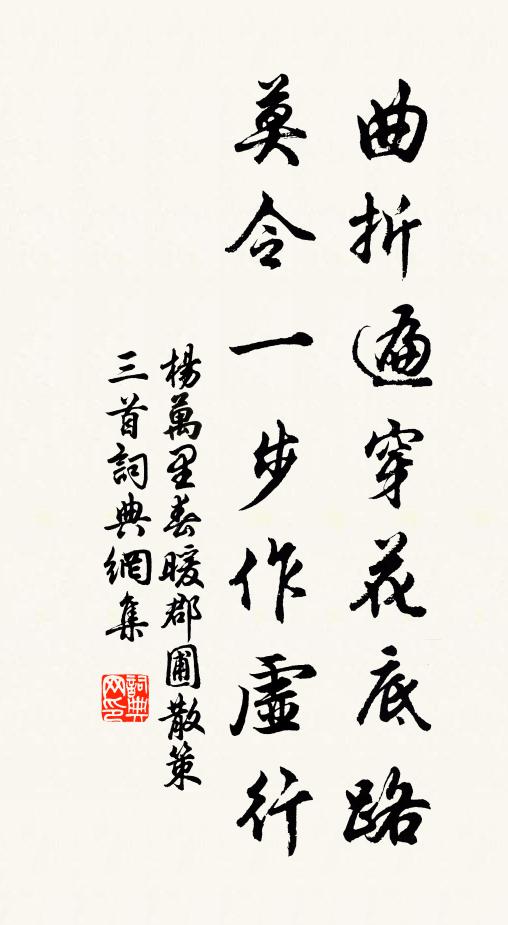 曲折遍穿花底路
莫令一步作虛行
楊萬里春暖郡圃散策
三首詞典網集
詞典网印